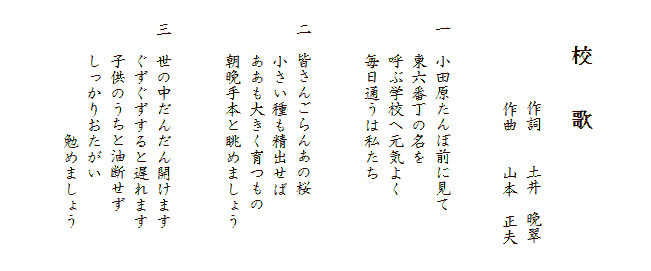 校歌
作詞 土井 晩翠
作曲 山本 正夫
一 小田原たんぼ前に見て
東六番丁の名を
呼ぶ学校へ元気よく
毎日通うは私たち
二 皆さんごらんあの桜
小さい種も精出せば
ああも大きく育つもの
朝晩手本と眺めましょう
三 世の中だんだん開けます
ぐずぐずすると遅れます
子供のうちと油断せず
しっかりおたがい
勉めましょう